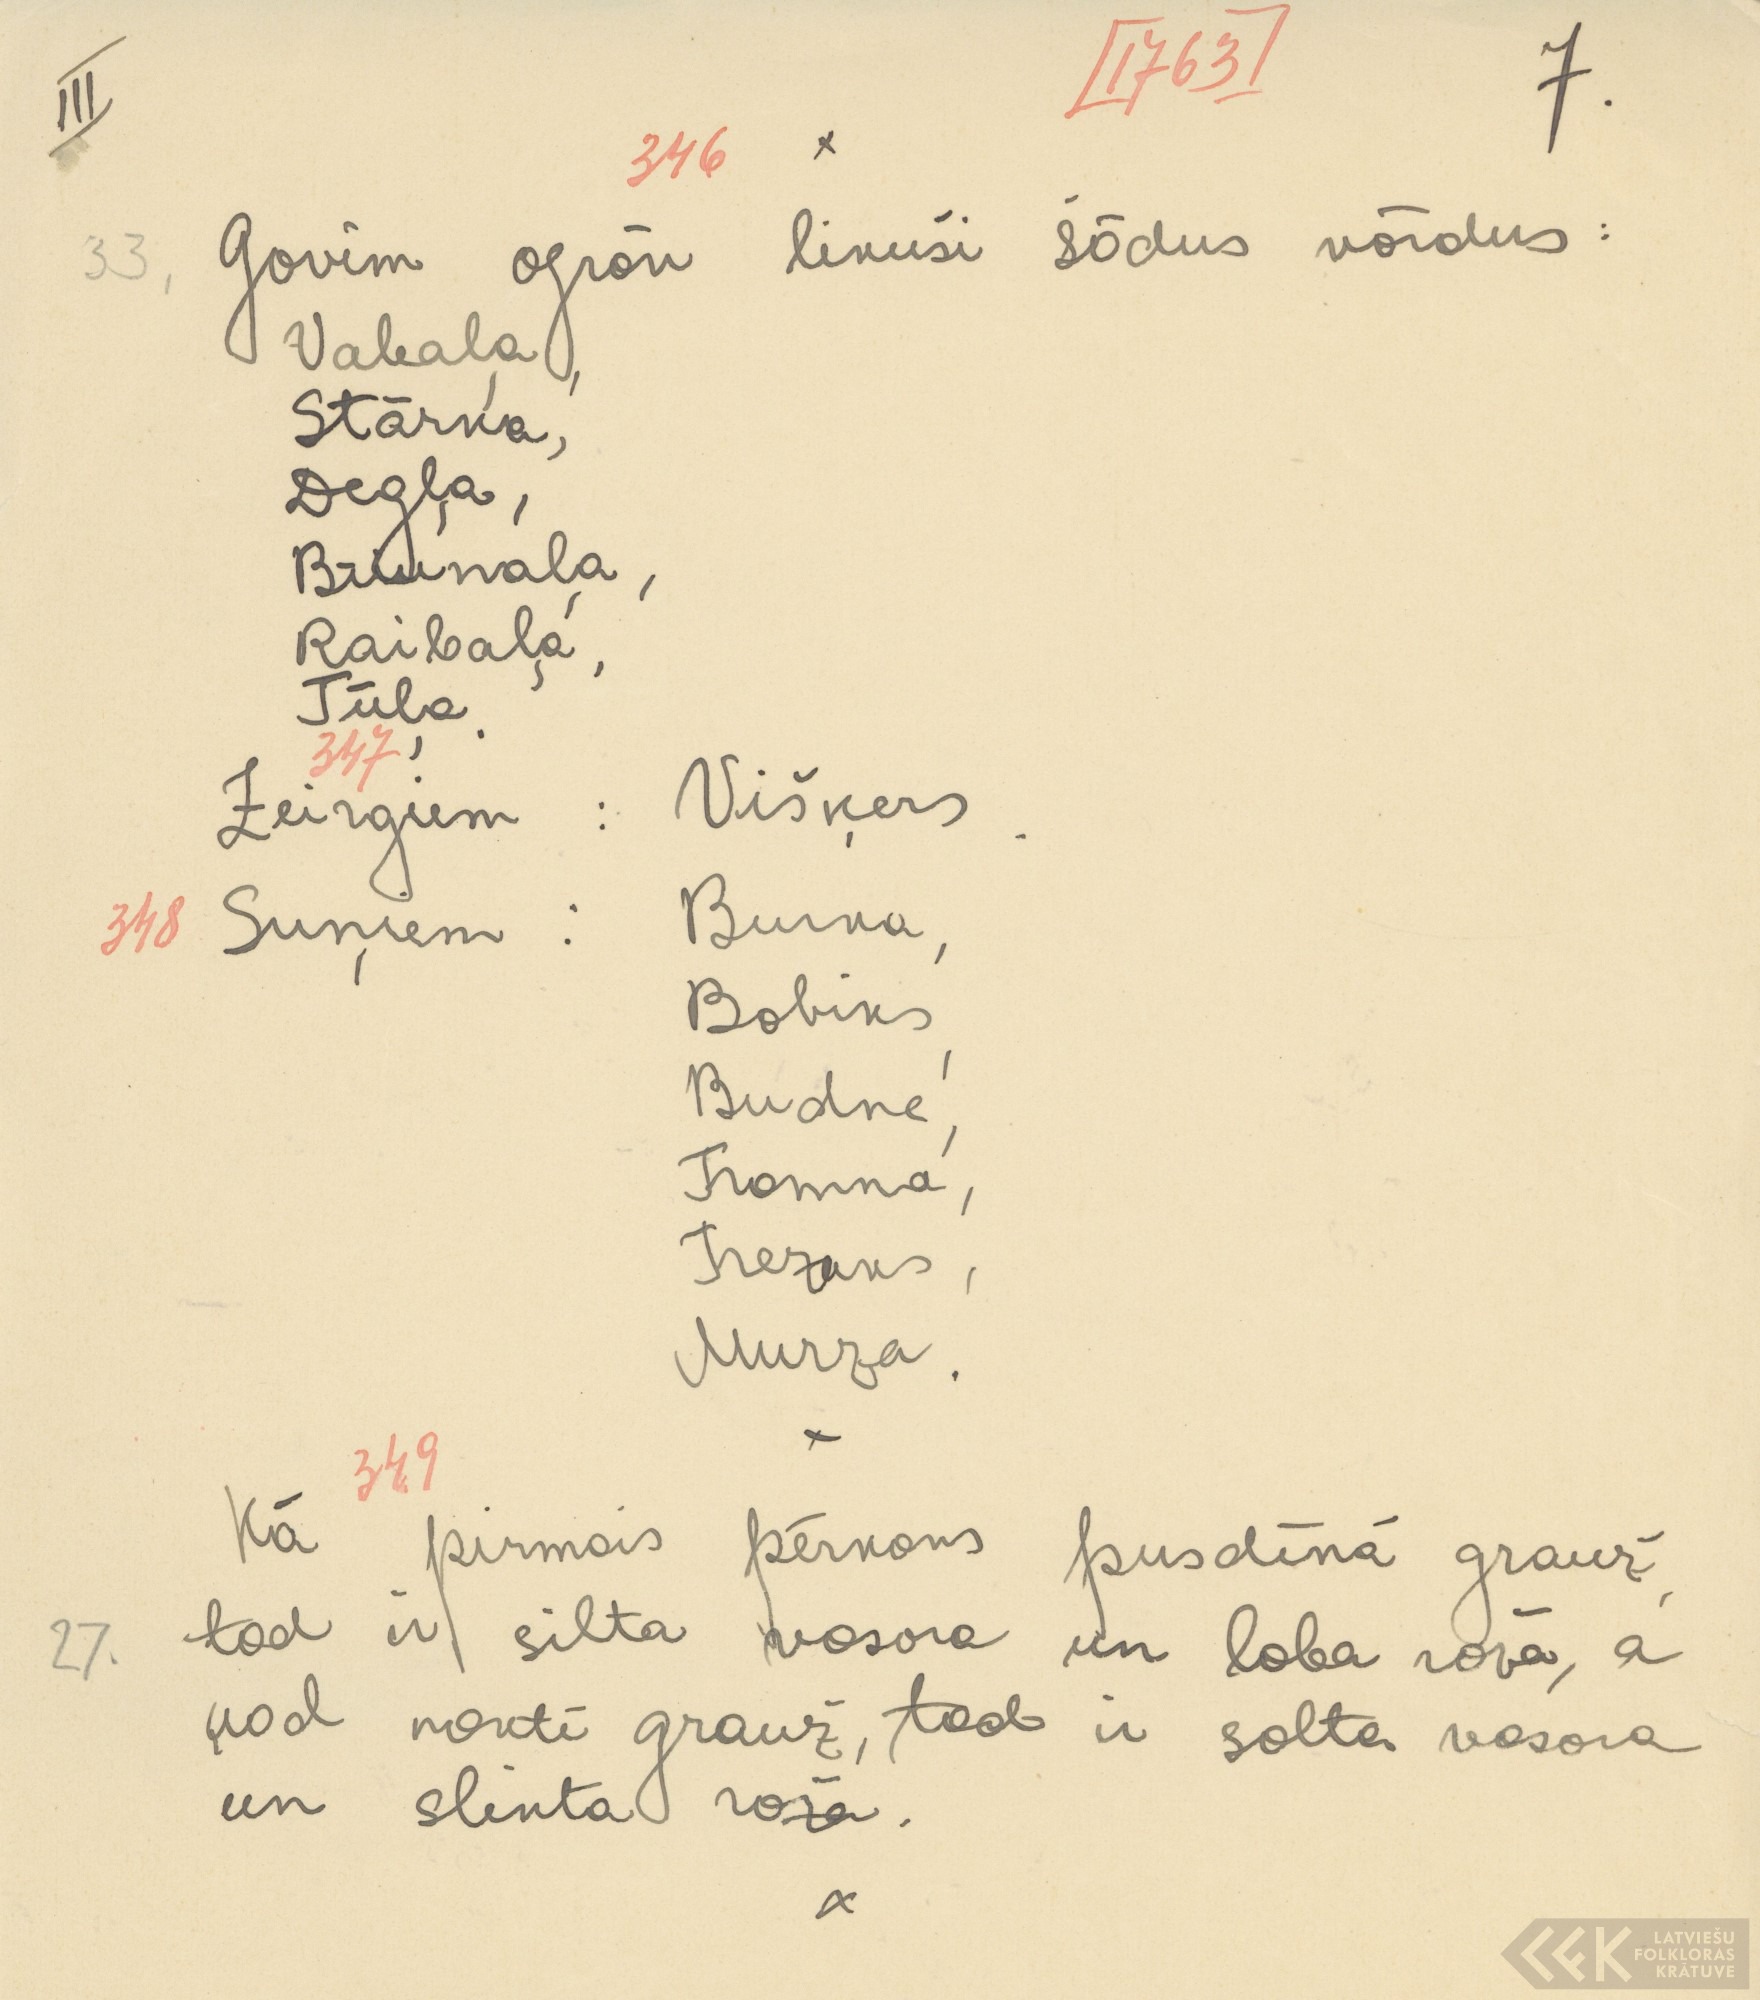 III
[1763]
7.
346 x
33, Govim ogrōk likuši šōdus vōrdus:
Vakaļa,
Stārķa,
Degļa,
Bruņaļa,
Raibaļa,
Tūļa.
347
Zeirgiem : Višķers.
348 Suņiem : Burka,
Bobiks,
Budne,
Tromka,
Trezuks,
Murza.
x
349
Kā pirmais pērkons pusdīnā grauž,
27. tod ir silta vosora un loba rožā, a
kod noktī grauž, tod ir solta vosora
un slikta roža.
x
LATVIEŠU
FOLKLORAS
KRĀTUVE